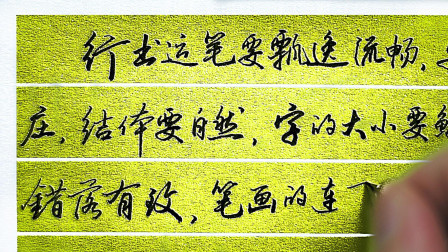 行书运笔要飘逸流畅，
庄，结体要自然，字的大小要
错落有致，笔画的连